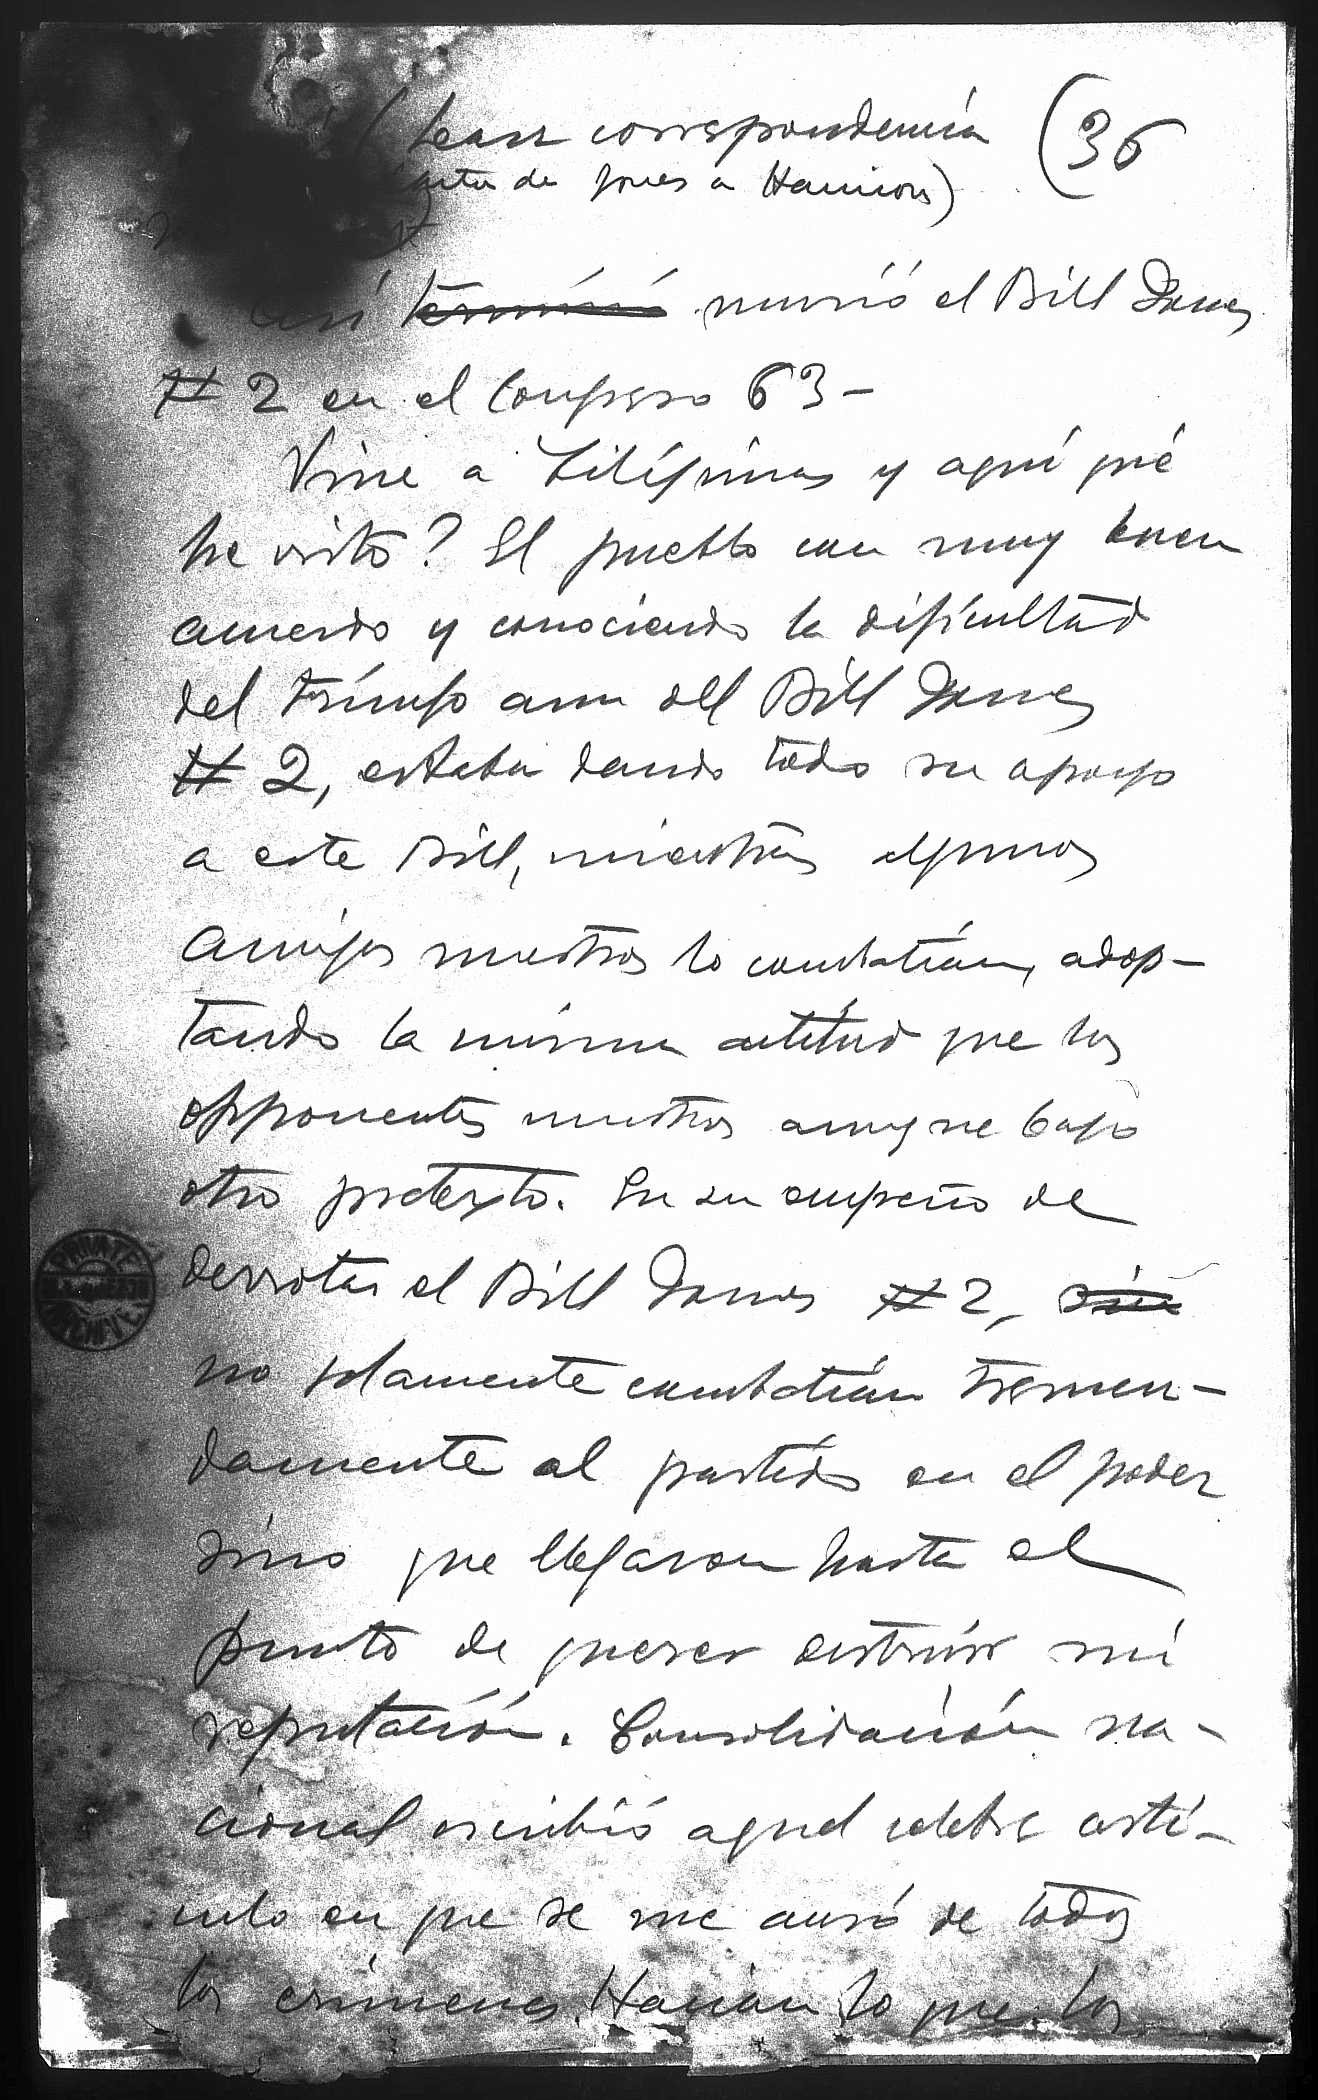 (Lease correspondencia (36
carta de Jones a Harrison)
Así terminó murió el Bill Jones
# 2 en el Congreso 63—
Vine a Filipinas y aquí qué
he visto? El pueblo con muy buen
acuerdo y conociendo la dificultad
del triunfo aun del Bill Jones
# 2, estaba dando todo su apoyo
a este Bill, mientras algunos
amigos nuestros lo combatían, adop-
tando la misma actitud que los
opponentes nuestros aunque bajo
otro pretexto. En su empeño de
derrotar el Bill Jones # 2, sin
no solamente combatían tremen-
damente al partido en el poder
sino que llegaron hasta el
punto de querer destruir mi
reputación. Consolidación na-
cional escribió aquel celebre artí-
culo en que se me acusó de todos
los crímenes. Hacían lo que los
PRIVATE